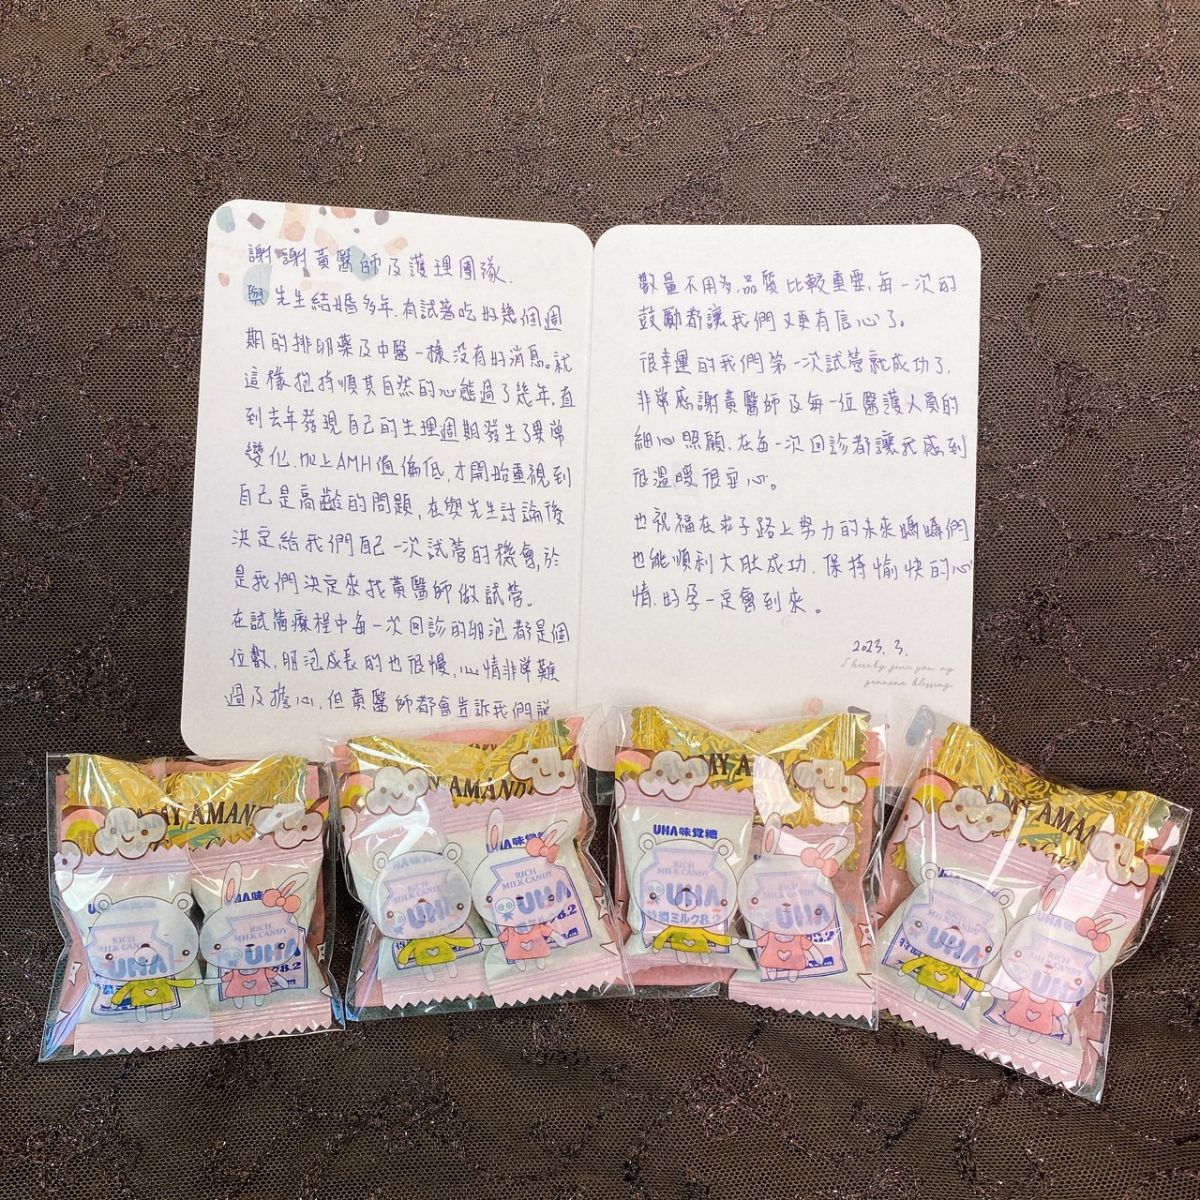 謝謝黃醫師及護理團隊.
與先生結婚多年,有試著吃好幾個週
期的排卵藥及中醫一樣沒有好消息。就
這樣抱持順其自然的心態過了幾年,直
到去年發現自己的生理週期發生了異常
變化,加上AMH值偏低,才開始重視到
自己是高齡的問題,在與先生討論後
決定給我們自己一次試管的機會,於
是我們決定來找黃醫師做試管。
在試管療程中每一次回診的卵泡都是個
位數,卵泡成長的也很慢,心情非常難
過及擔心,但黃醫師都會告訴我們說
數量不用多,品質比較重要,每一次的
鼓勵都讓我們又更有信心了。
很幸運的我們第一次試管就成功了,
非常感謝黃醫師及每一位醫護人員的
細心照顧,在每一次回診都讓我感到
很溫暖很安心。
也祝福在求子路上努力的未來媽媽們
也能順利大肚成功,保持愉快的心
情,好孕一定會到來。
2023.3.
I hereby give you my
genuine blessing
MY AMAND
MY AMAND
MY AMAND
MY AMAN
UHA味覚糖
RICH
MILK CANDY
UHA
特濃ミルク8.2
UHA味覚糖
RICH
MILK CANDY
UHA
8.2
UHA味覚糖
RICH
MILK CANDY
UHA
特濃ミルク8.2
RICH
MILK CANDY
UHA